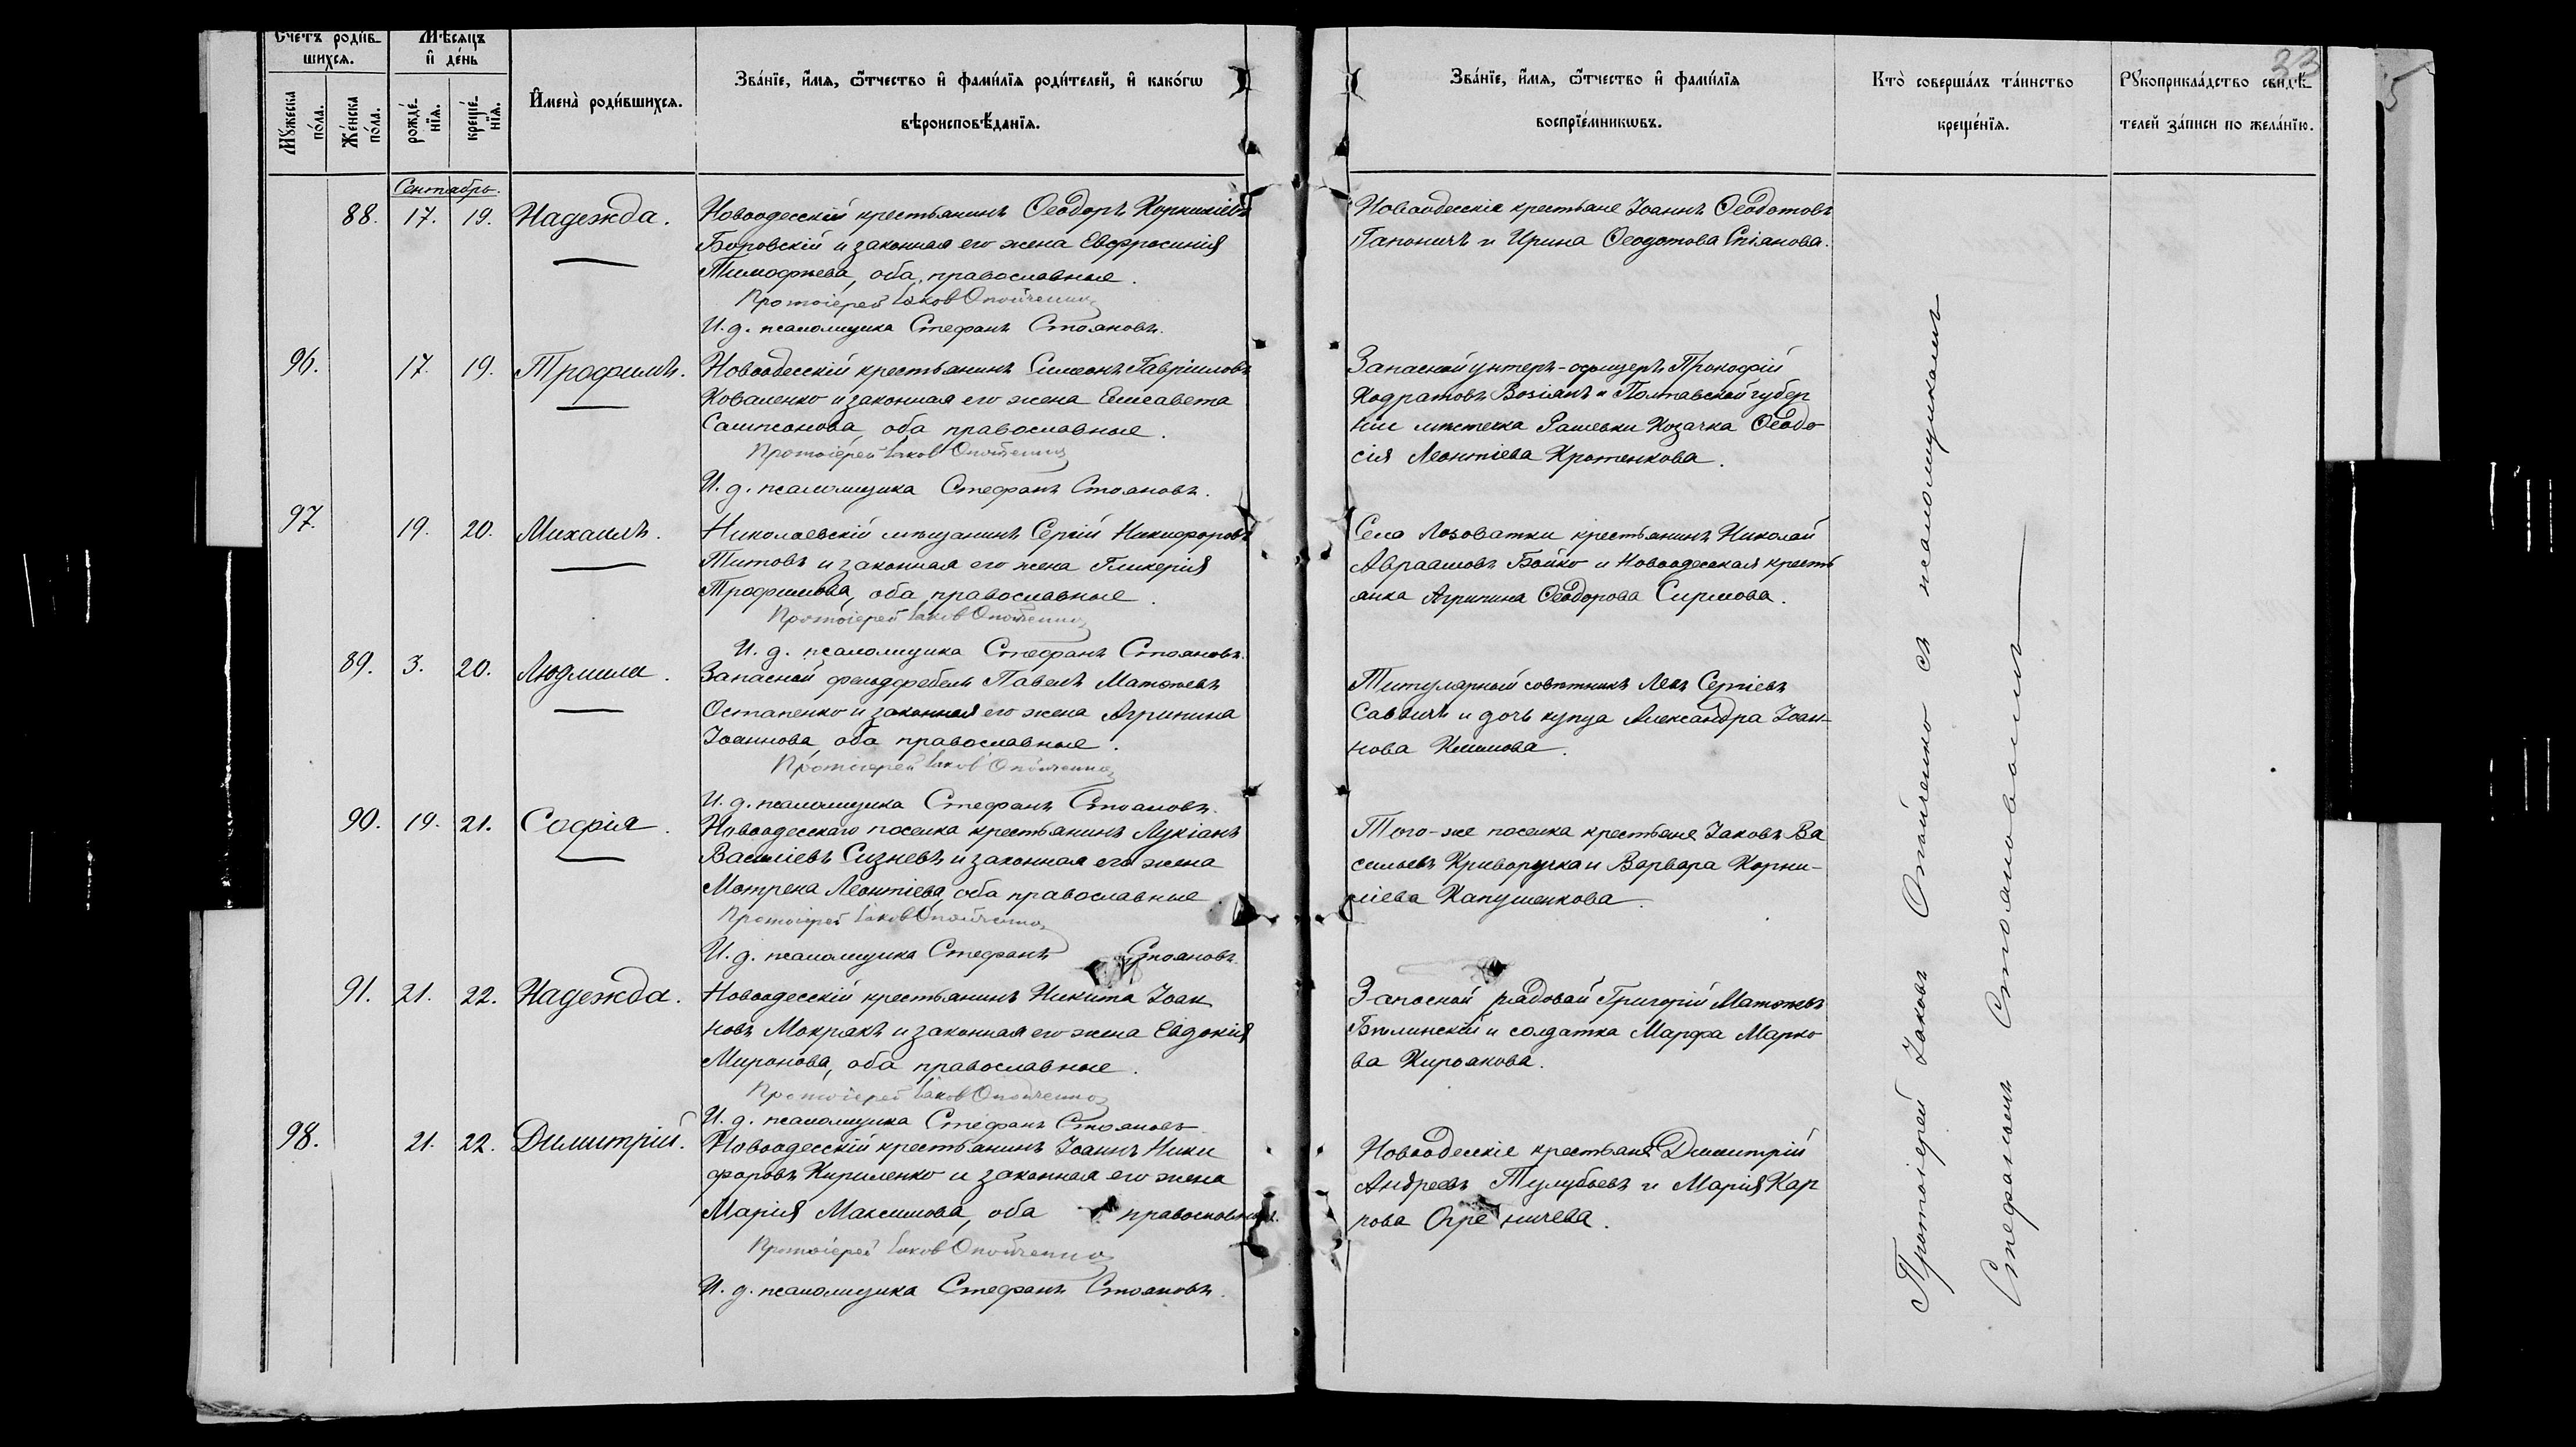 Счетъ родив-
шихся.
Мѣсяцъ
и день
Мужеска
пола.
Женска
пола.
рожде-
нія.
креще-
нія.
Имена родившихся.
Званіе, имя, ѿтчество и фамилія родителей, и какогѡ
вѣроисповѣданія.
Сентябрь.
88. 17. 19. Надежда.
Новоодесскій крестьянинъ Ѳеодоръ Корниліевъ
Боровскій и законная его жена Евфросинія
Тимофѣева, оба православные.
Протоіерей Іаков Опойченко
И. д. псаломщика Стефанъ Стояновъ.
96. 17. 19. Трофимъ.
Новоодесскій крестьянинъ Симеонъ Гавріиловъ
Коваленко и законная его жена Елисавета
Сампсонова, оба православные.
Протоіерей Іаков Опойченко
И. д. псаломщика Стефанъ Стояновъ.
97. 19. 20. Михаилъ.
Николаевскій мѣщанинъ Сергій Никифоровъ
Титовъ и законная его жена Гликерія
Трофимова, оба православные.
Протоіерей Іаков Опойченко
И. д. псаломщика Стефанъ Стояновъ.
89. 3. 20. Людмила.
Запасной фельдфебель Павелъ Матѳеевъ
Остапенко и законная его жена Агрипина
Іоаннова, оба православные.
Протоіерей Іаков Опойченко
И. д. псаломщика Стефанъ Стояновъ.
90. 19. 21. Софія.
Новоодесскаго поселка крестьянинъ Лукіанъ
Василіевъ Сизневъ и законная его жена
Мотрена Леонтіева, оба православные
Протоіерей Іаков Опойченко
И. д. псаломщика Стефанъ Стояновъ.
91. 21. 22. Надежда.
Новоодесскій крестьянинъ Никита Іоан
новъ Мокрякъ и законная его жена Евдокія
Миронова, оба православные.
Протоіерей Іаков Опойченко
И. д. псаломщика Стефанъ Стояновъ
98. 21. 22. Димитрій.
Новоодесскій крестьянинъ Іоаннъ Ники
форовъ Кириленко и законная его жена
Марія Максимова, оба православные.
Протоіерей Іаков Опойченко
И. д. псаломщика Стефанъ Стояновъ.
33
Званіе, имя, ѿтчество и фамилія
воспріемникѡвъ.
Кто совершалъ таинство
крещенія.
Рукоприкладство свидѣ-
телей записи по желанію.
Новоодесскіе крестьяне Іоаннъ Ѳеодотовъ
Гапоничъ и Ирина Ѳеодотова
Запасной унтеръ-офицеръ Прокофій
Кодратовъ и Полтавской губер
ніи мѣстечка Рашевки Козачка Ѳеодо
сія Леонтіева Кротенкова.
Села Лозоватки крестьянинъ Николай
Авраамовъ Бойко и Новоодесская кресть
янка Агрипина Ѳеодорова Сирмова.
Титулярный совѣтникъ Левъ Сергіевъ
Саввичъ и дочь купца Александра Іоан-
нова Климова.
Того-же поселка крестьяне Іаковъ Ва
сильевъ Криворучка и Варвара Корни-
ліева Капушенкова.
Запасной рядовой Григорій Матѳеевъ
Бѣлинскій и солдатка Марфа Марко
ва Кироакова.
Новоодесскіе крестьяне Димитрій
Андреевъ Тулубьевъ и Марія Кар
пова Огреничева.
Протоіерей Іаковъ Опойченко съ псаломщикомъ
Стефаномъ Стояновымъ